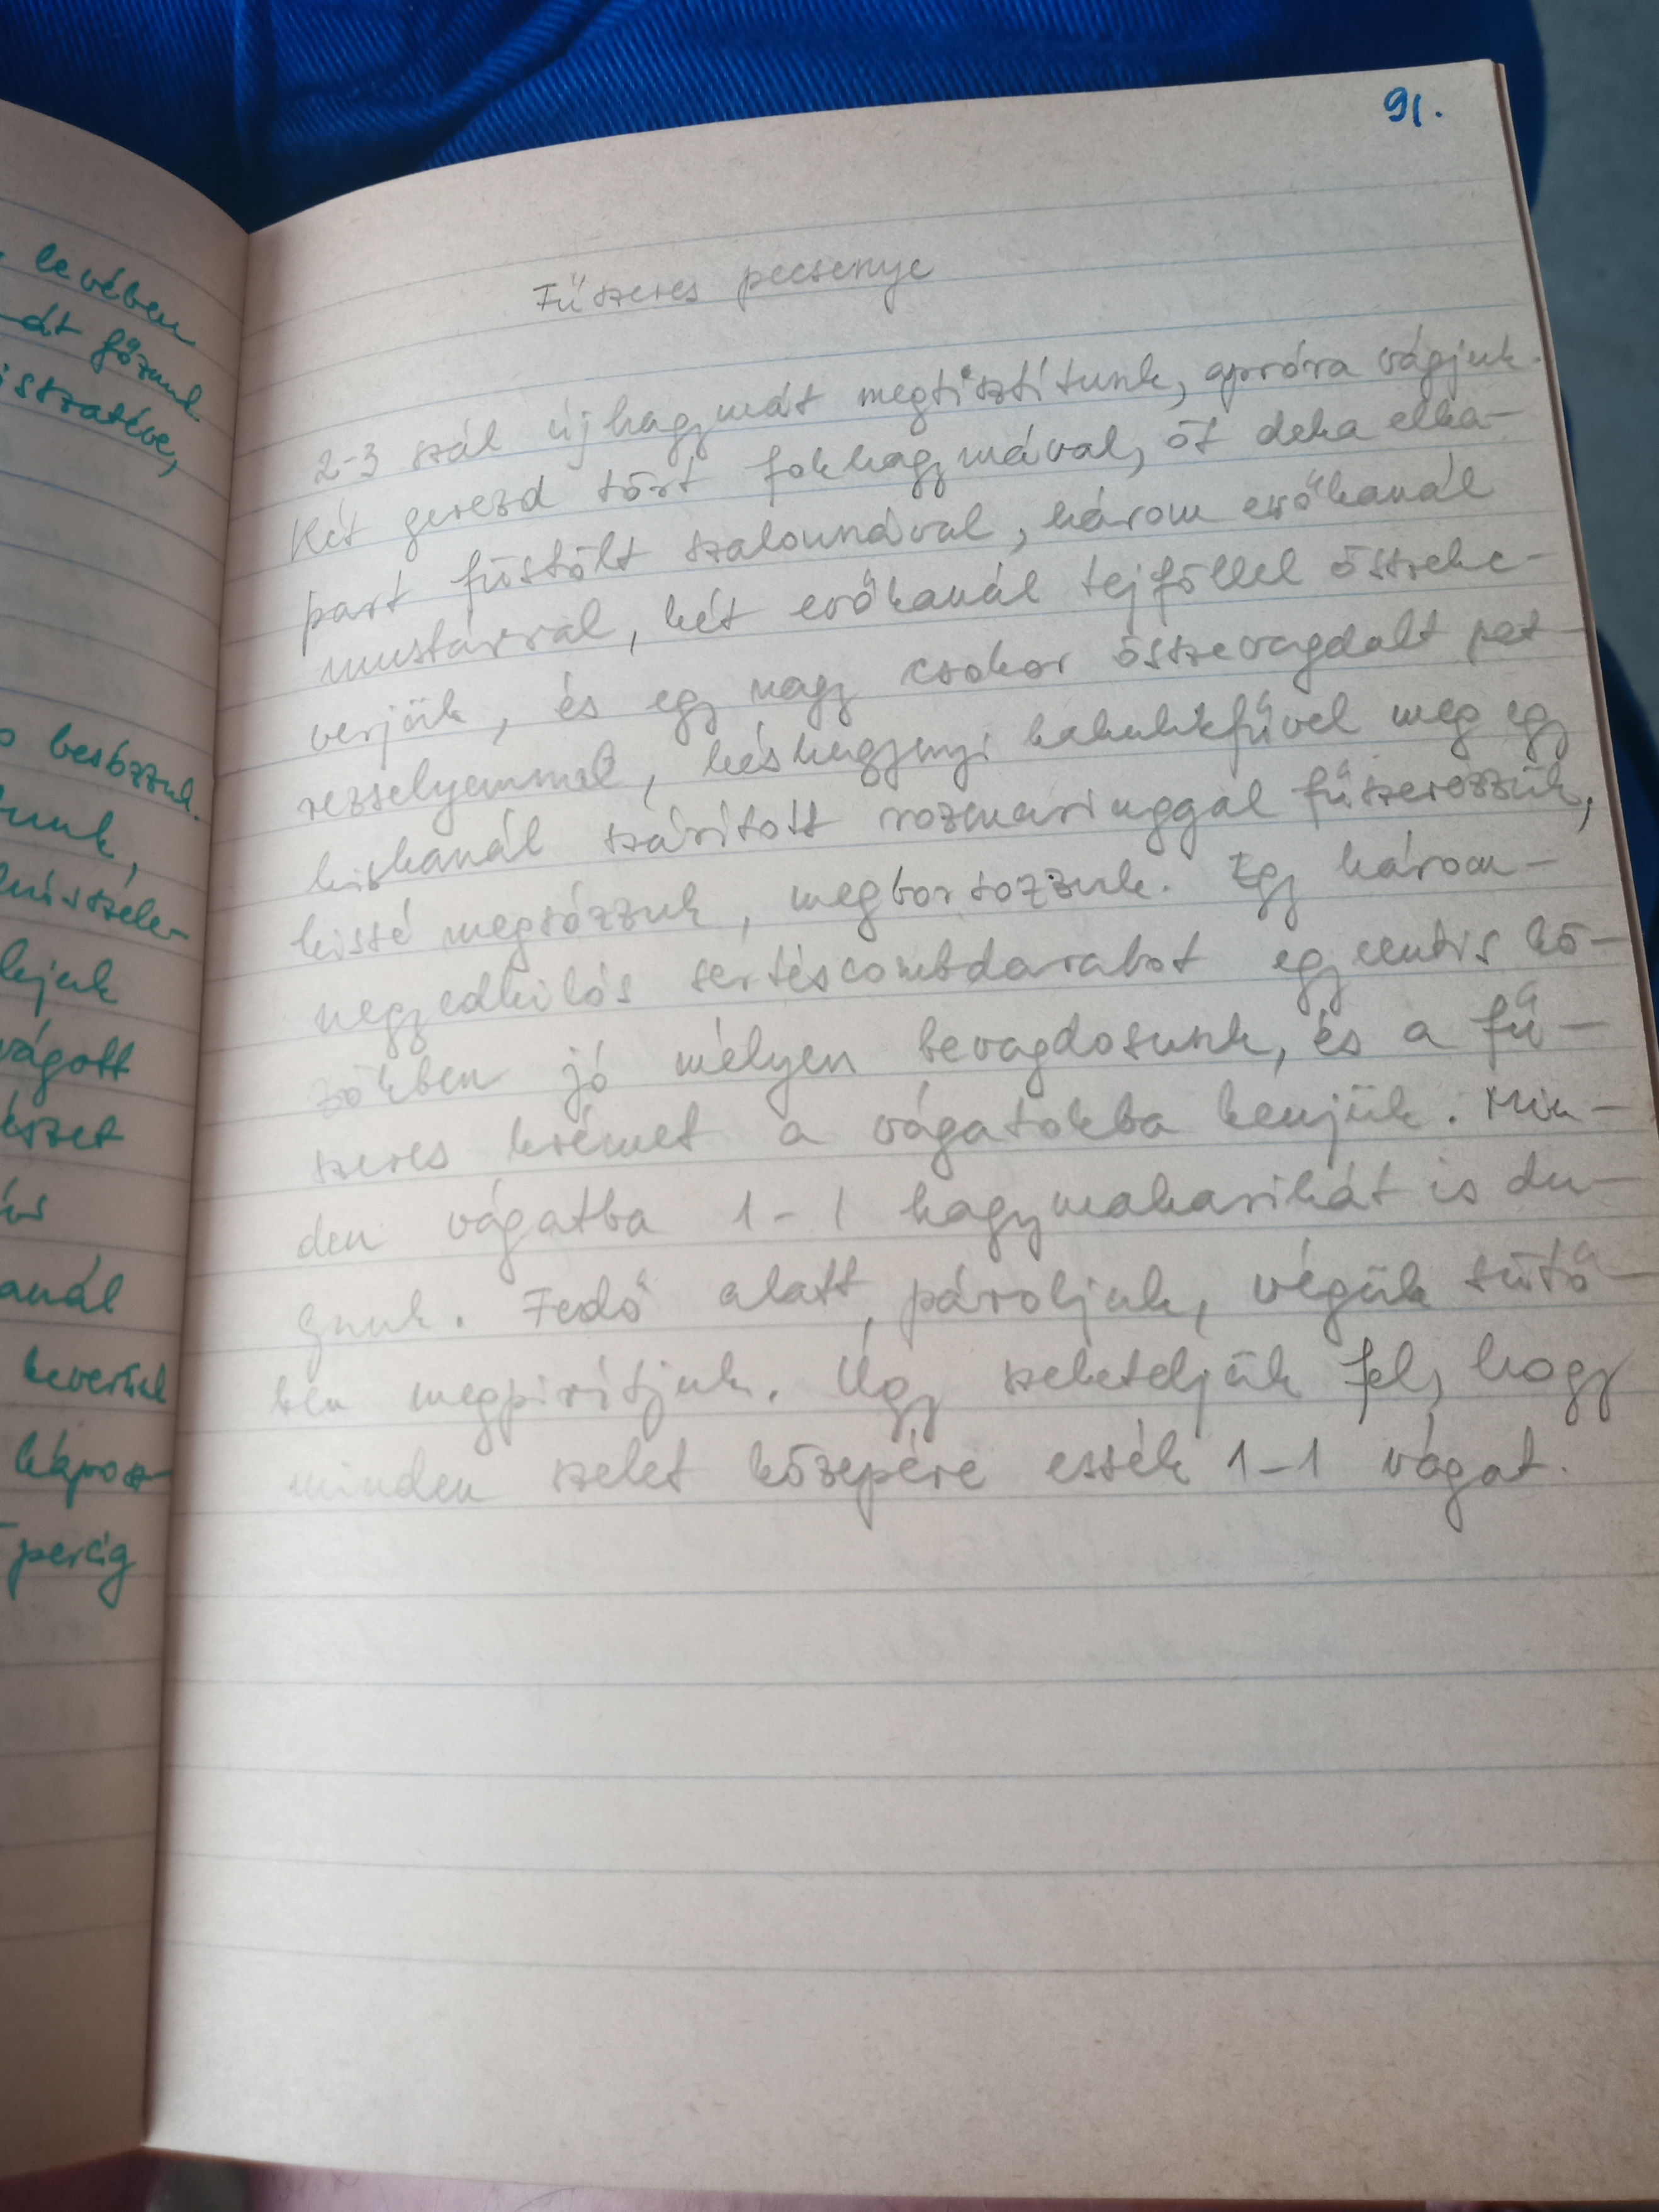 levében
át főzünk
isztatéve,
besózzuk.
tunk,
vágott
észet
anál
keverünk
káposz-
percig
91.
Fűszeres pecsenye
2-3 szál újhagymát megtisztítunk, apróra vágjuk.
Két gerezd tört fokhagymával, öt deka elka-
part füstölt szalonnával, három evőkanál
mustárral, két evőkanál tejföllel összeke-
verjük, és egy nagy csokor összevagdalt pet-
rezselyemmel, késhegynyi kakukkfűvel meg egy
kiskanál szárított rozmaringgal fűszerezzük,
kissé megsózzuk, megborsozzuk. Egy három-
negyedkilós sertéscombdarabot egycentis kö-
zökben jó mélyen bevagdosunk, és a fű-
szeres krémet a vágatokba kenjük. Min-
den vágatba 1-1 hagymakarikát is du-
gunk. Fedő alatt pároljuk, végük sütő-
ben megpirítjuk. Úgy szeleteljük fel, hogy
minden szelet közepére essék 1-1 vágat.